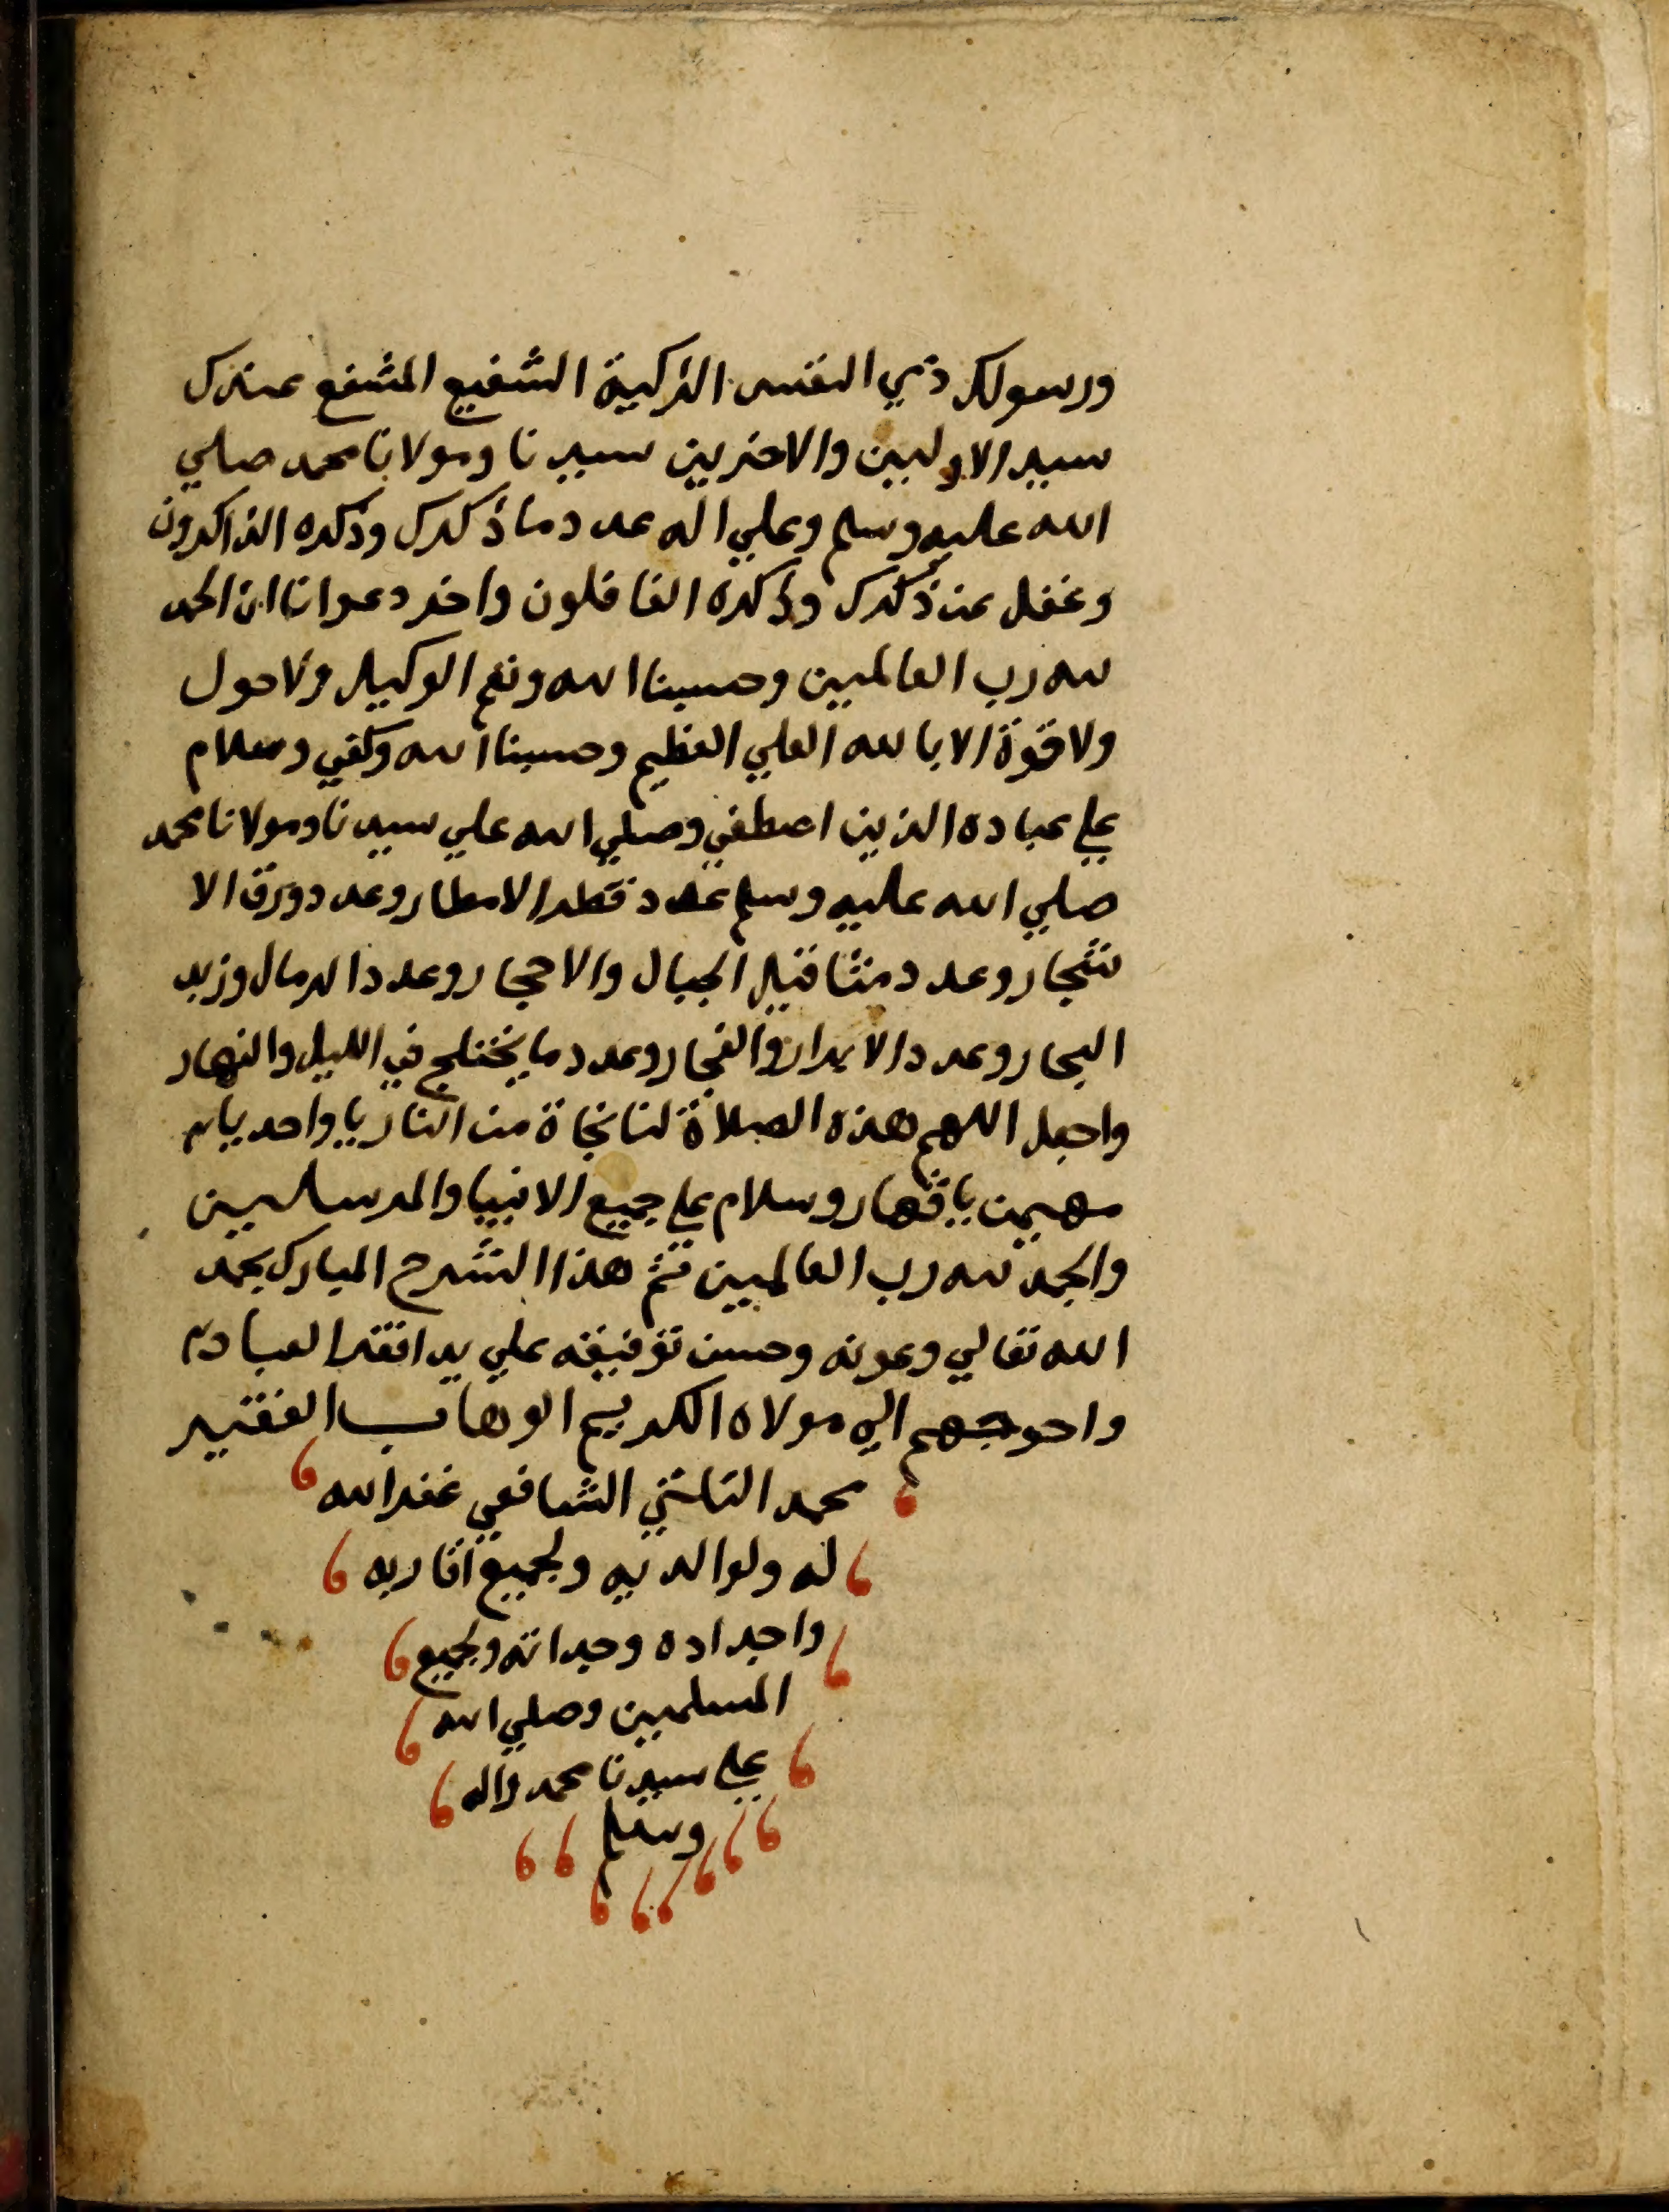 ورسولك ذي النفس الزكية الشفيع المشفع عندك
سيد الاولين والاخرين سيدنا ومولانا محمد صلي
الله عليه وسلم وعلي اله عدد ما ذكرك وذكره الذاكرون
وغفل عن ذكرك وذكره الغافلون واخر دعوانا ان الحمد
لله رب العالمين وحسبنا الله ونعم الوكيل ولا حول
ولا قوة الا بالله العلي العظيم وحسبنا الله وكفي وسلام
علي عباده الذين اصطفي وصلي الله علي سيدنا ومولانا محمد
صلي الله عليه وسلم عدد قطر الامطار وعدد ورق الا
شجار وعدد مثاقيل الجبال والاحجار وعدد الرمال وزبد
البحار وعدد الابرار والفجار وعدد ما يختلج في الليل والنهار
واجعل اللهم هذه الصلاة لنا نجاة من النار يا واحد يا
مهيمن يا قهار وسلام علي جميع الانبيا والمرسلين
والحمد لله رب العالمين تم هذا الشرح المبارك بحمد
الله تعالي وعونه وحسن توفيقه علي يد افقر العباد
واحوجهم الي مولاه الكريم الوهاب الفقير
محمد الشافعي غفر الله
له ولوالديه ولجميع اقاربه
واجداده وجداته ولجميع
المسلمين وصلي الله
علي سيدنا محمد واله
وسلم